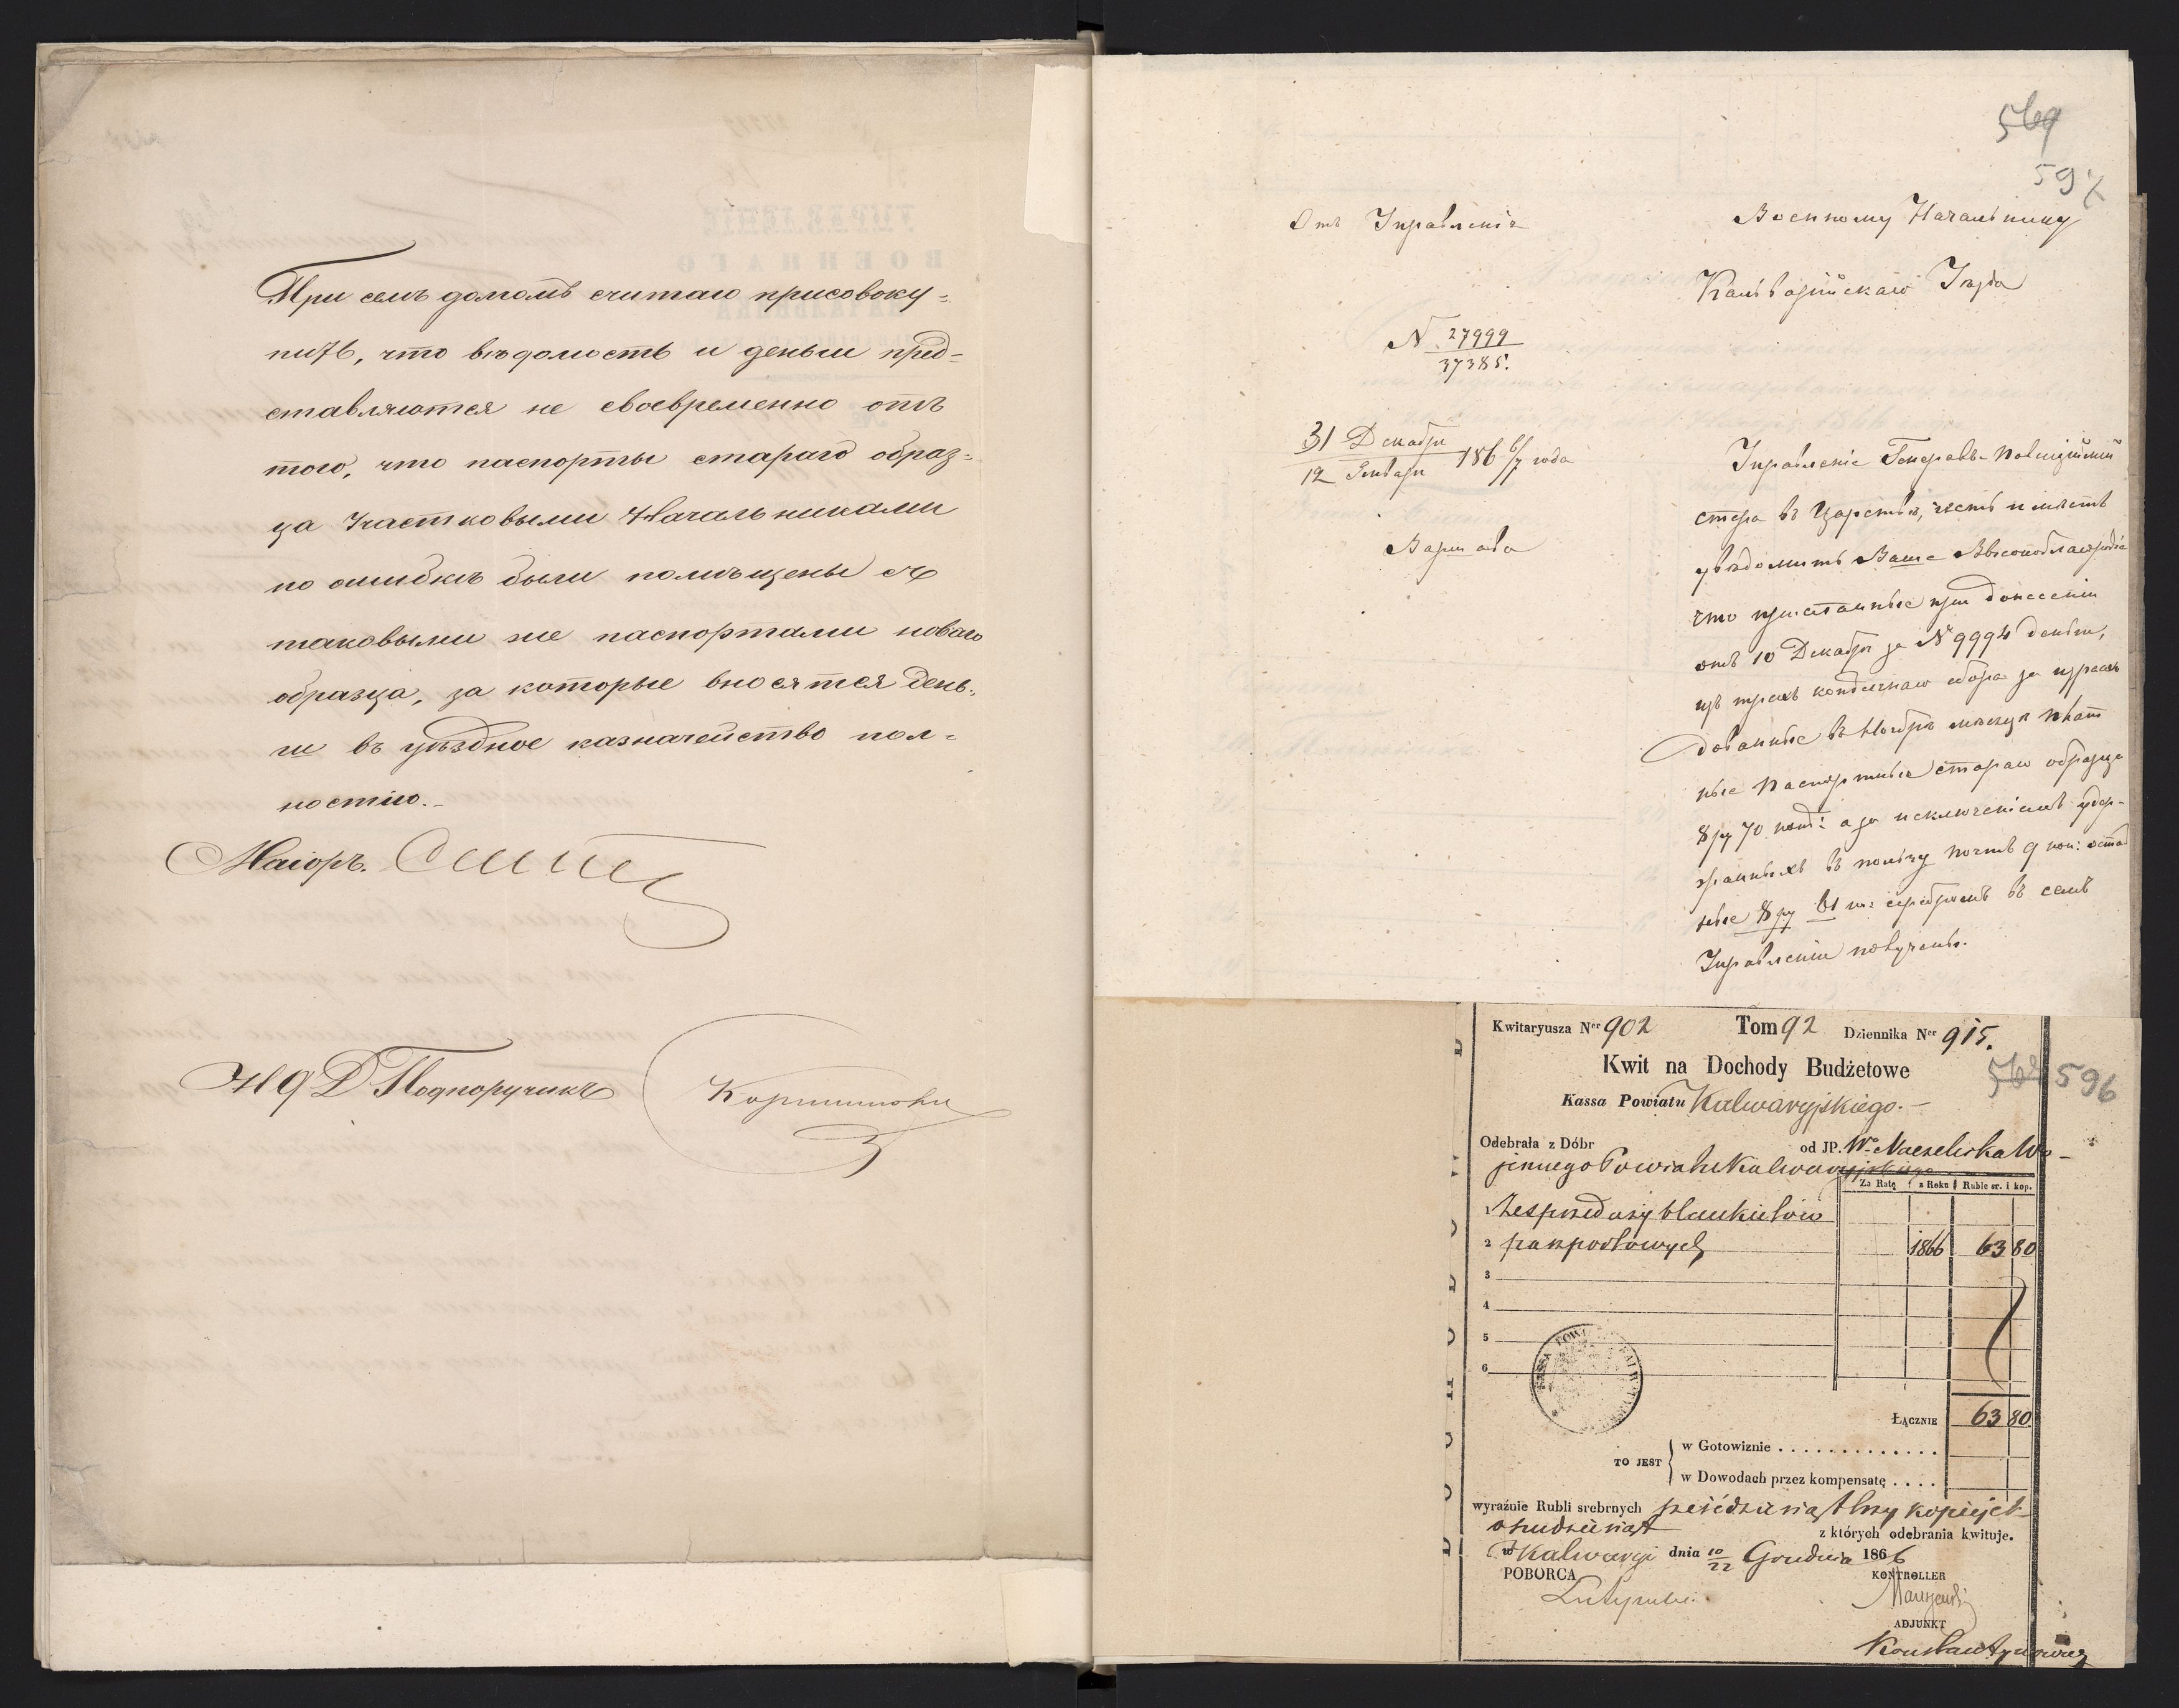 При семъ долгомъ считаю присовоку=
пить, что вѣдомость и деньги пред=
ставляются не своевременно отъ
того, что паспорты стараго образ=
ца Участковыми Начальниками
по ошибкѣ были помѣщены съ
таковыми же паспортами новаго
образца, за которые вносятся день=
ги въ уѣздное казначейство пол=
ностію.
Маіоръ.
И Д Подпоручикъ
569
597
Отъ Управленія
N. 27999
37385.
31 Декабря
12 Января 186 6/7 года
Варшава
Военному Начальнику
Кальварійскаго Уѣзда
Управленіе Генералъ-Полиціймей
стера въ Царствѣ, честь имѣетъ
увѣдомить Ваше Высокоблагородіе
что присланные при донесеніи
отъ 10 Декабря за N 9994 деньги,
изъ трехъ копѣечнаго сбора за израсхо
дованные въ Ноябрѣ мѣсяцѣ плат
ные паспорты стараго образца
8 ру 70 коп: а за исключеніемъ удер-
жанныхъ въ пользу почтъ 9 коп: осталь
ные 8 ру 61 к: серебромъ въ семъ
Управленіи получены.
Kwitaryusza Ner 902 Tom 92 Dziennika Ner 915.
Kwit na Dochody Budżetowe
596
Kassa Powiatu Kalwaryjskiego.
Odebrała z Dóbr od JP. Wo Naczelnika Wo-
jennego Powiatu Kalwaryjskiego
Za Ratę z Roku Ruble sr. i kop.
1 Ze sprzedaży blankietów
2 paszportowych 1866 63 80
3
4
5
6
Łącznie 63 80
TO JEST
w Gotowiznie
w Dowodach przez kompensatę
wyraźnie Rubli srebrnych sześćdziesiąt trzy kopiejek
ośmdziesiąt z których odebrania kwituje.
w Kalwaryi dnia 10/22 Grudnia 1866
POBORCA KONTROLLER
ADJUNKT
Konstantynowicz